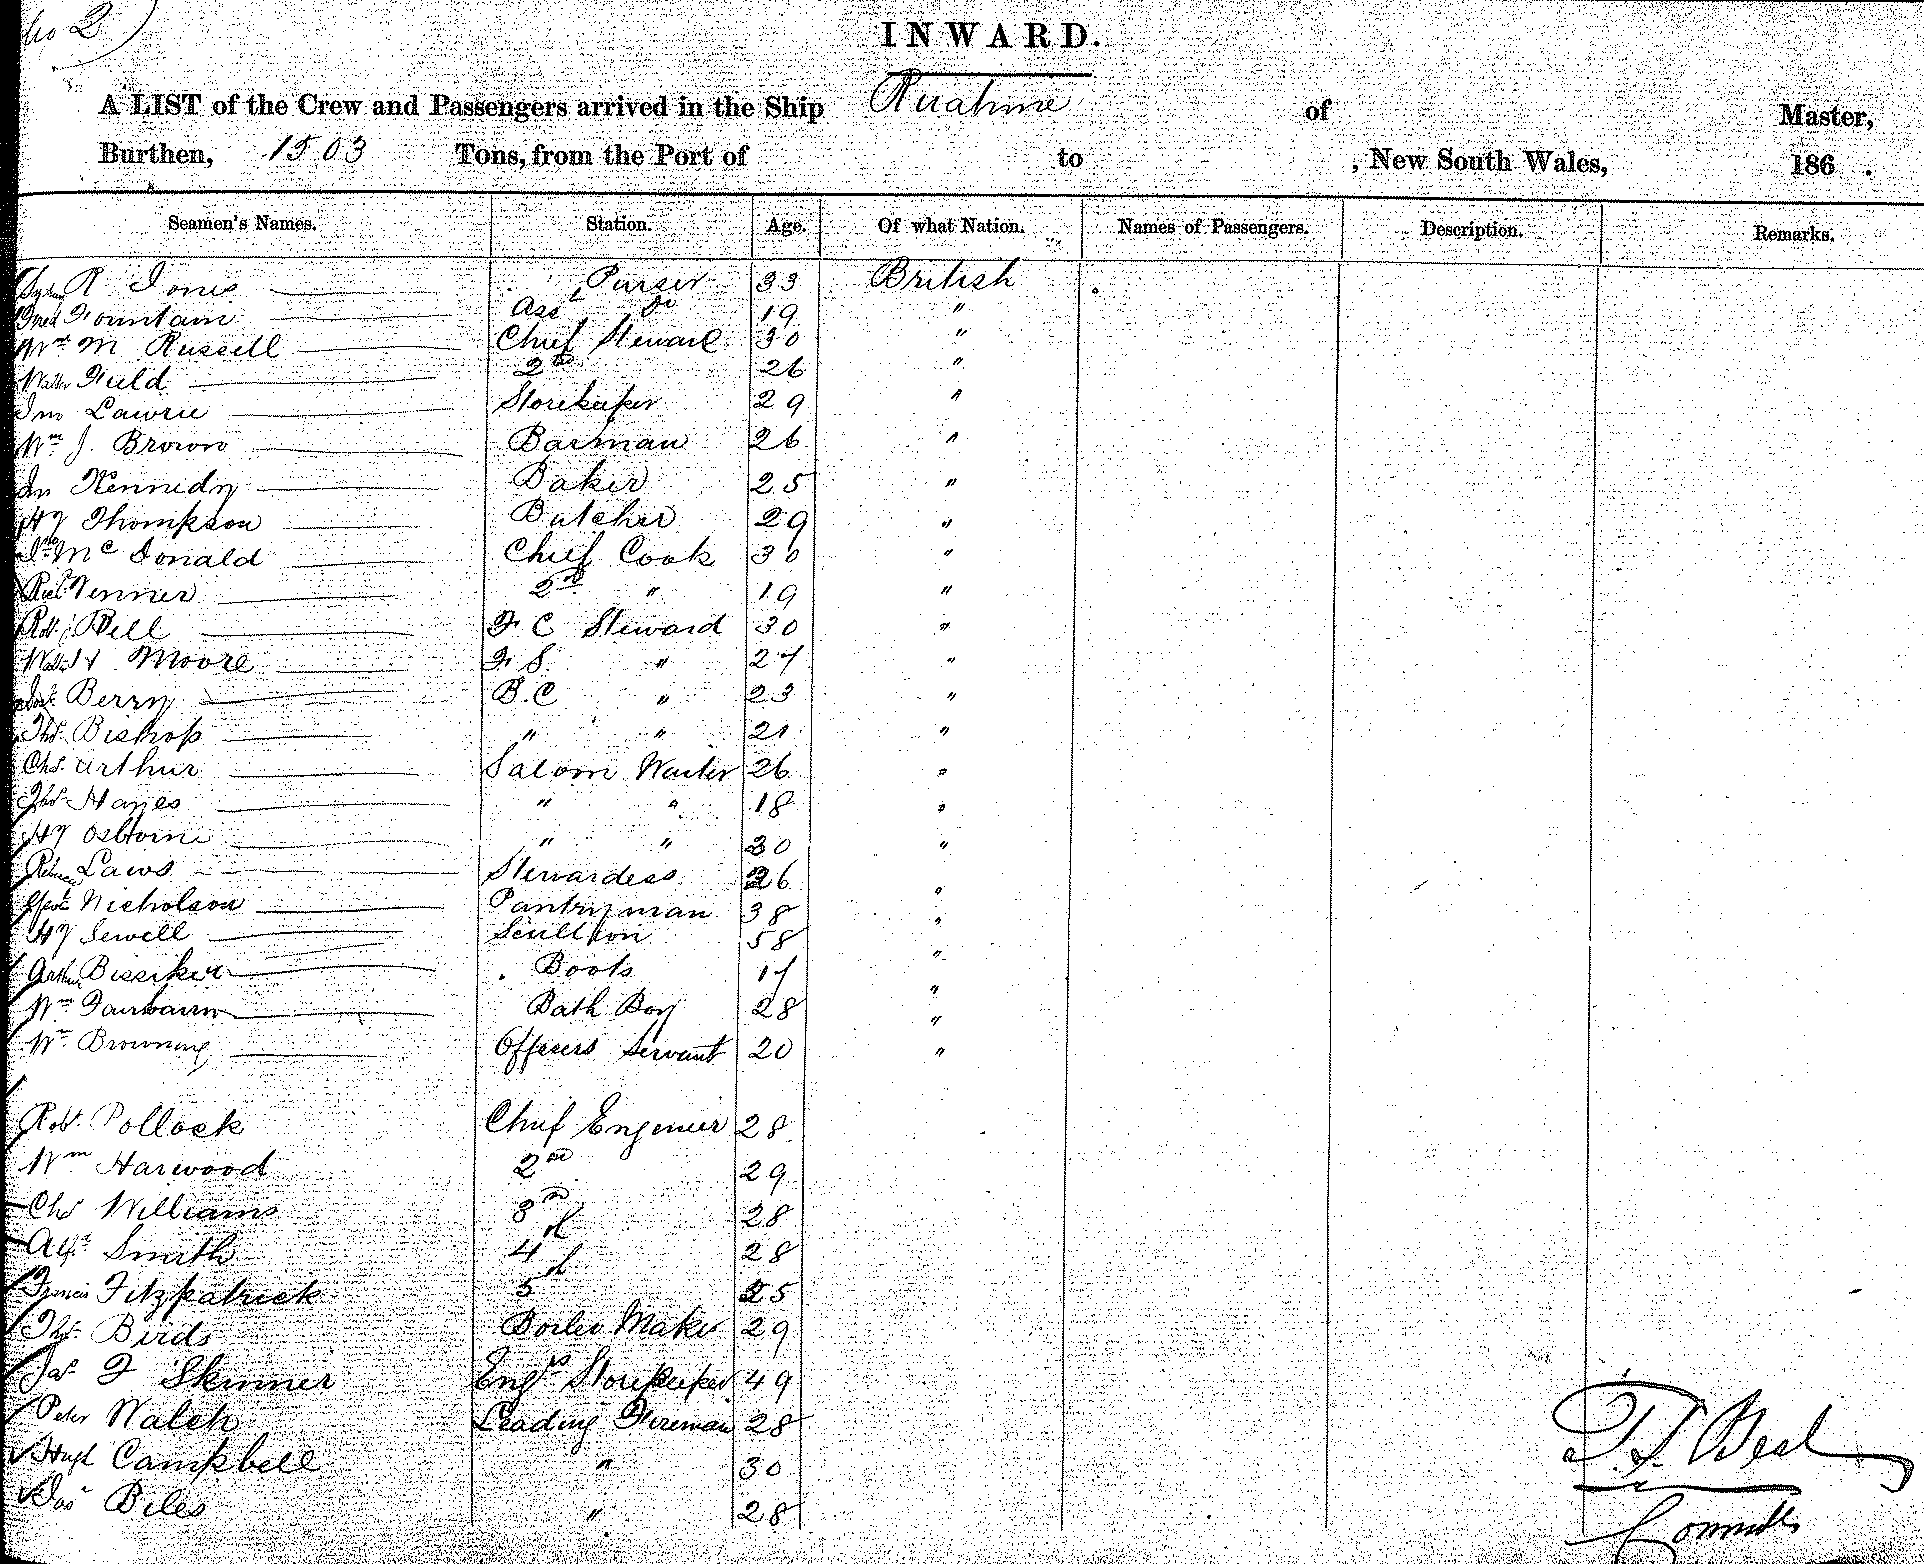 No 2
INWARD.
A LIST of the Crew and Passengers arrived in the Ship Ruahine of Master,
Burthen, 1503 Tons, from the Port of to , New South Wales, 186 .
Seamen's Names. Station. Age. Of what Nation. Names of Passengers. Description. Remarks.
R Jones Purser 33 British
Fred Fountain Asst Do 19 "
Wm M Russell Chief Steward 30 "
Walter Field 2nd 26 "
Jno Lawrie Storekeeper 29 "
Wm J. Brown Barman 26 "
Jno Kennedy Baker 25 "
Hy Thompson Butcher 29 "
Jno McDonald Chief Cook 30 "
Richd Venner 2nd " 19 "
Robt J. Bell F C Steward 30 "
Walter H Moore F S. " 27 "
Berry B.C " 23 "
Thos Bishop " " 21 "
Chs. Arthur Saloon Waiter 26 "
Thos Hayes " " 18 "
Hy Osborne " " 30 "
Rebecca Laws Stewardess 26 "
Nicholson Pantryman 38 "
Hy Sewell Scullion 58 "
Arthur Bissiker Boots 17 "
Wm Fairbairn Bath Boy 28 "
Wm Browning Officers Servant 20 "
Robt. Pollock Chief Engineer 28
Wm Harwood 2nd 29
Chs Williams 3rd 28
Alfd Smith 4th 28
Francis Fitzpatrick 5th 25
Thos. Birds Boiler Maker 29
Jas. F Skinner Engrs Storekeeper 49
Peter Walch Leading Fireman 28
Hugh Campbell " 30
Jas Biles " 28
T. S. Beal
Comndr